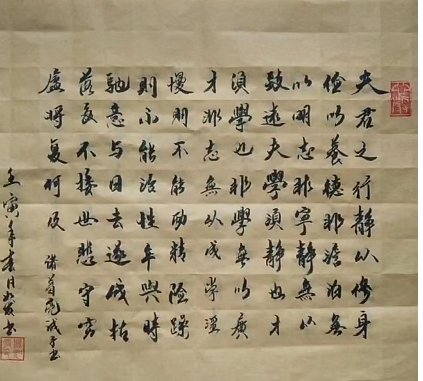 夫君之行靜以修身
儉以養德非澹泊無
以明志非寧靜無以
致遠夫學須靜也才
須學也非學無以廣
才非志無以成學淫
慢則不能励精險躁
則不能治性年與時
馳意與日去遂成枯
落多不接世悲守窮
廬將復何及
諸葛亮誡子書
壬寅年春月書